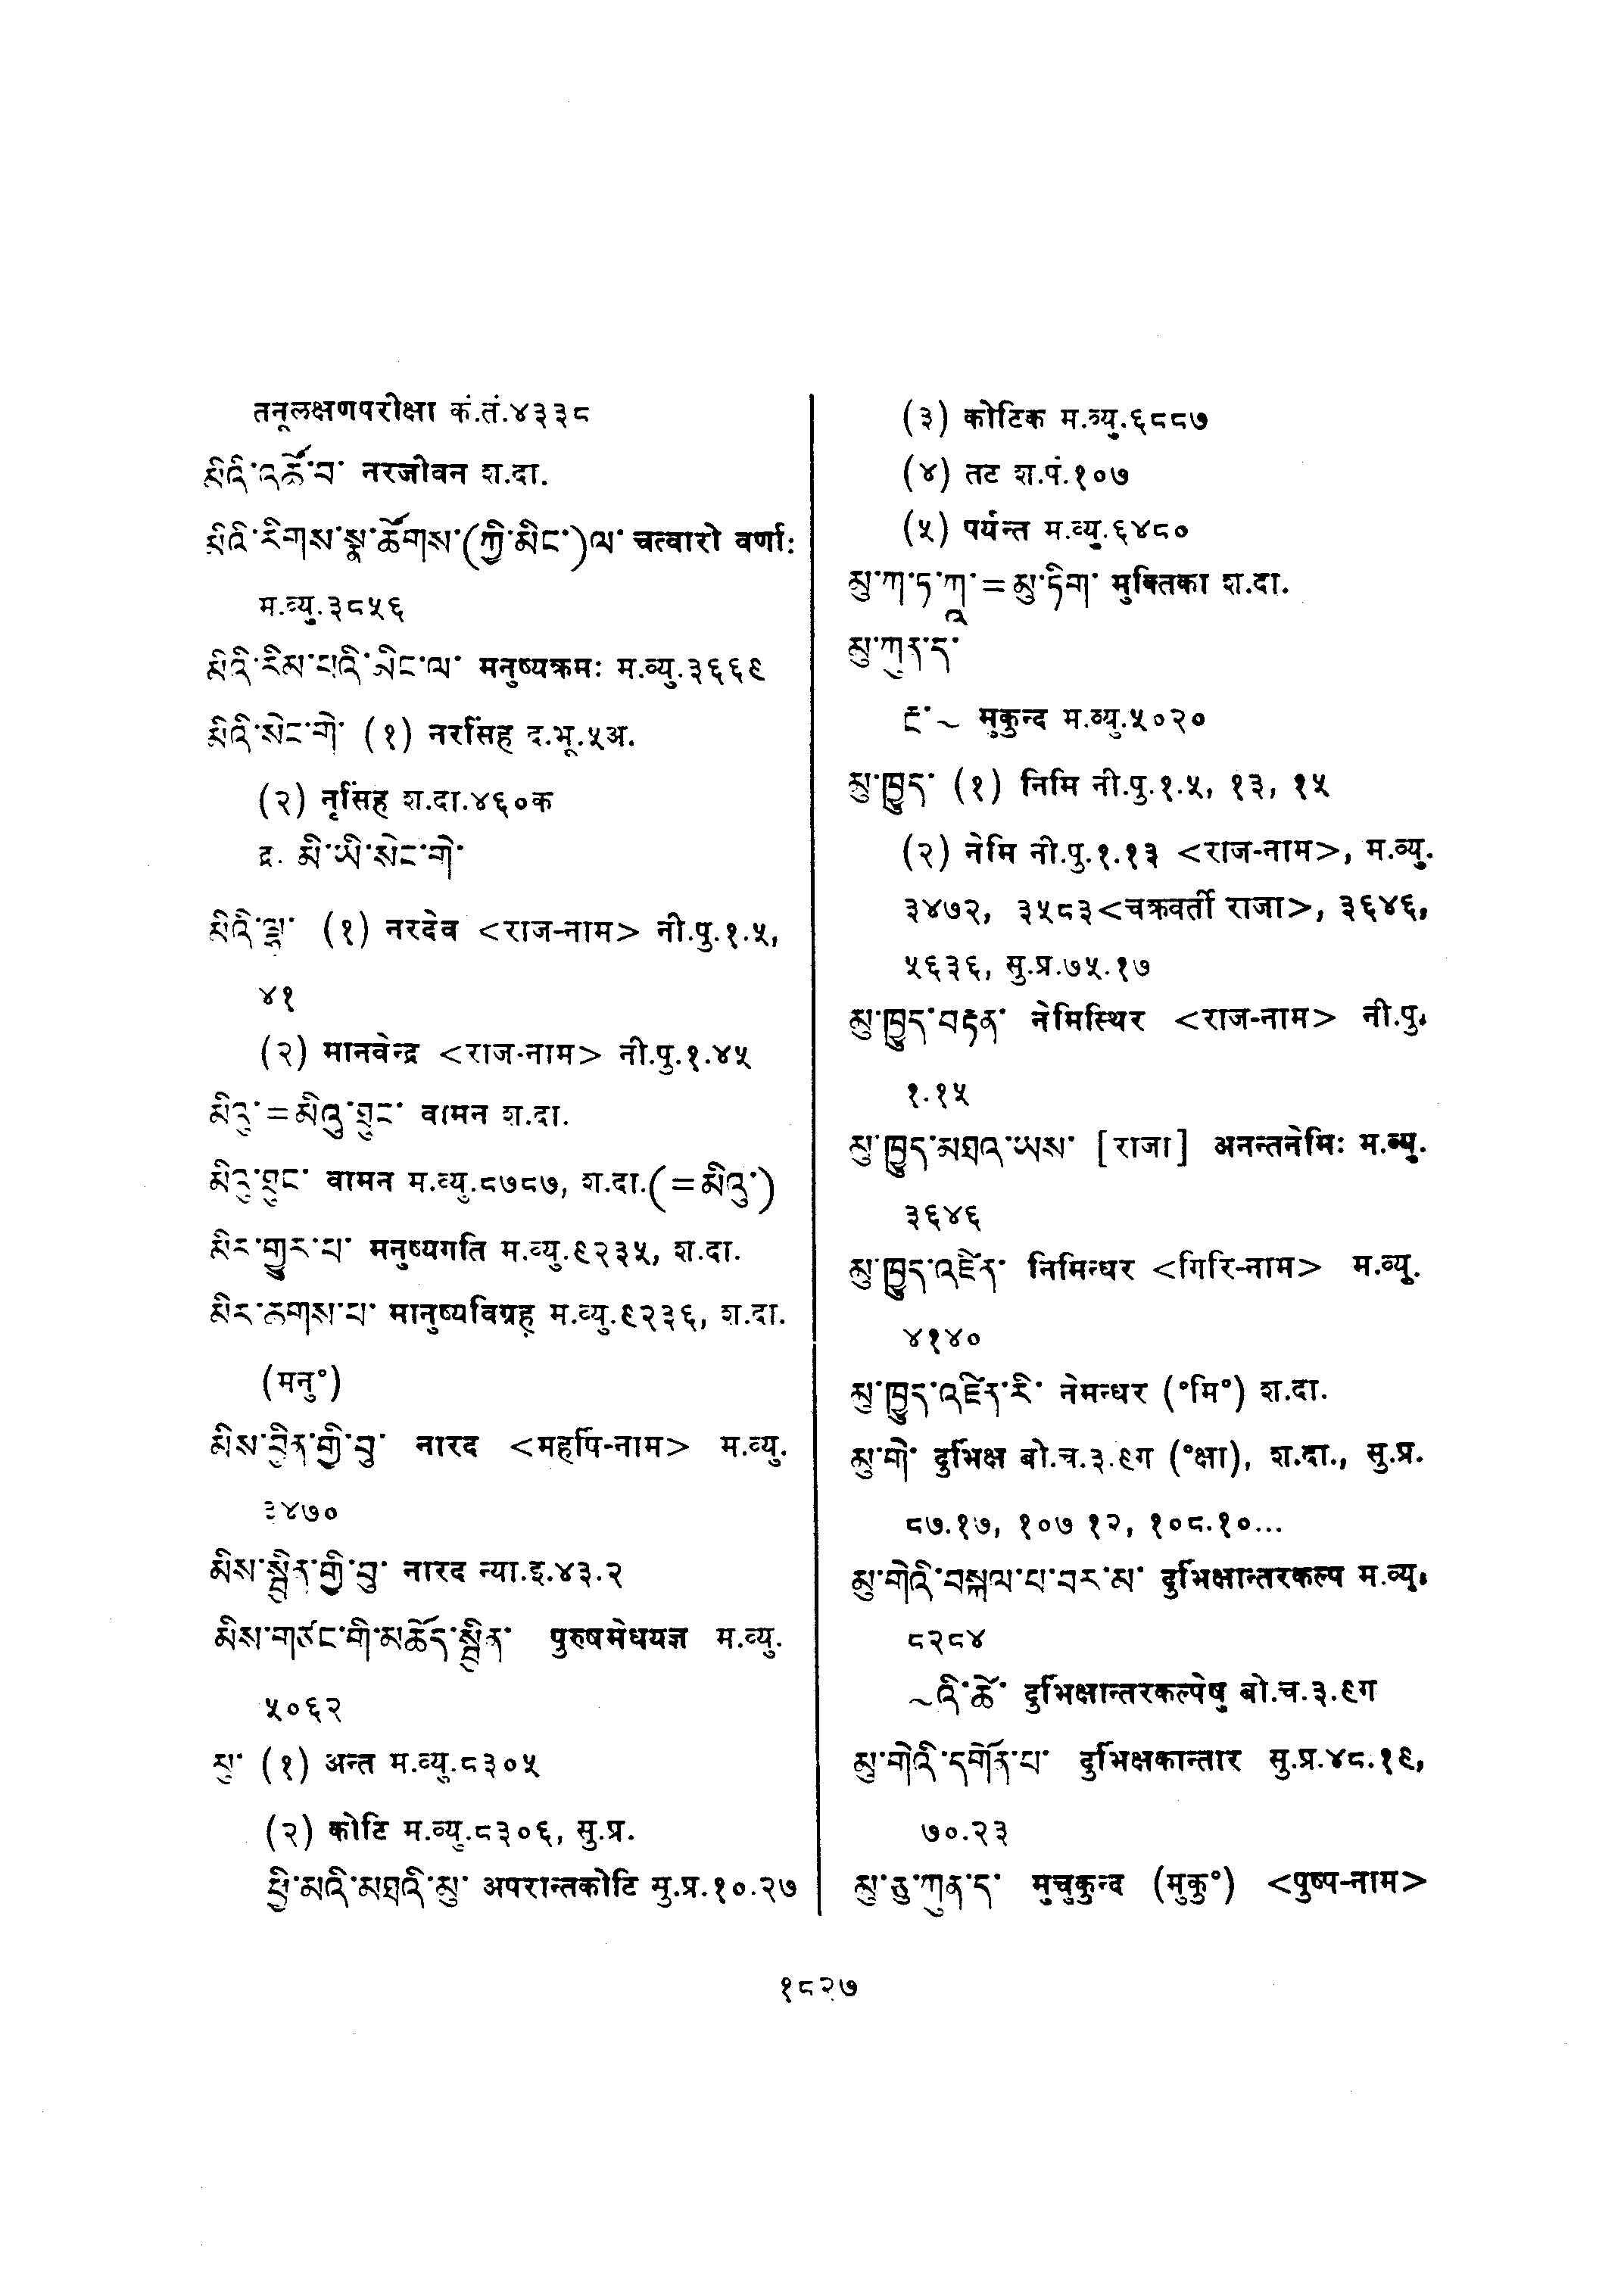 तनूलक्षणपरीक्षा कं.तं.४३३८
མིའི་འཚོ་བ་ नरजीवन श.दा.
མིའི་རིགས་སྣ་ཚོགས་(ཀྱི་མིང་)ལ་ चत्वारो वर्णाः
म.व्यु.३८५६
མིའི་རིམ་པའི་མིང་ལ་ मनुष्यक्रमः म.व्यु.३६६९
མིའི་སེང་གེ་ (१) नरसिंह द.भू.५अ.
(२) नृसिंह श.दा.४६०क
द्र. མི་ཡི་སེང་གེ་
མིའི་ལྷ་ (१) नरदेव <राज-नाम> नी.पु.१.५,
४१
(२) मानवेन्द्र <राज-नाम> नी.पु.१.४५
མིའུ་=མིའུ་ཐུང་ वामन श.दा.
མིའུ་ཐུང་ वामन म.व्यु.८७८७, श.दा.(=མིའུ་)
མིར་གྱུར་པ་ मनुष्यगति म.व्यु.९२३५, श.दा.
མིར་ཆགས་པ་ मानुष्यविग्रह म.व्यु.९२३६, श.दा.
(मनु°)
མིས་བྱིན་གྱི་བུ་ नारद <महर्षि-नाम> म.व्यु.
३४७०
མིས་སྦྱིན་གྱི་བུ་ नारद न्या.इ.४३.२
མིས་གཙང་གི་མཆོད་སྦྱིན་ पुरुषमेधयज्ञ म.व्यु.
५०६२
མུ་ (१) अन्त म.व्यु.८३०५
(२) कोटि म.व्यु.८३०६, सु.प्र.
ཕྱི་མའི་མཐའི་མུ་ अपरान्तकोटि सु.प्र.१०.२७
(३) कोटिक म.व्यु.६८८७
(४) तट श.पं.१०७
(५) पर्यन्त म.व्यु.६४८०
མུ་ཀ་ཏ་ཀཱ་=མུ་ཏིག་ मुक्तिका श.दा.
མུ་ཀུན་ད་
རྔ་~ मुकुन्द म.व्यु.५०२०
མུ་ཁྱུད་ (१) निमि नी.पु.१.५, १३, १५
(२) नेमि नी.पु.१.१३ <राज-नाम>, म.व्यु.
३४७२, ३५८३<चक्रवर्ती राजा>, ३६४६,
५६३६, सु.प्र.७५.१७
མུ་ཁྱུད་བརྟན་ नेमिस्थिर <राज-नाम> नी.पु.
१.१५
མུ་ཁྱུད་མཐའ་ཡས་ [राजा] अनन्तनेमिः म.व्यु.
३६४६
མུ་ཁྱུད་འཛིན་ निमिन्धर <गिरि-नाम> म.व्यु.
४१४०
མུ་ཁྱུད་འཛིན་རི་ नेमन्धर (°मि°) श.दा.
མུ་གེ་ दुर्भिक्ष बो.च.३.९ग (°क्षा), श.दा., सु.प्र.
८७.१७, १०७ १२, १०८.१०...
མུ་གེའི་བསྐལ་པ་བར་མ་ दुर्भिक्षान्तरकल्प म.व्यु.
८२८४
~འི་ཚེ་ दुर्भिक्षान्तरकल्पेषु बो.च.३.९ग
མུ་གེའི་དགོན་པ་ दुर्भिक्षकान्तार सु.प्र.४८.१९,
७०.२३
མུ་ཅུ་ཀུན་ད་ मुचुकुन्द (मुकु°) <पुष्प-नाम>
१८२७